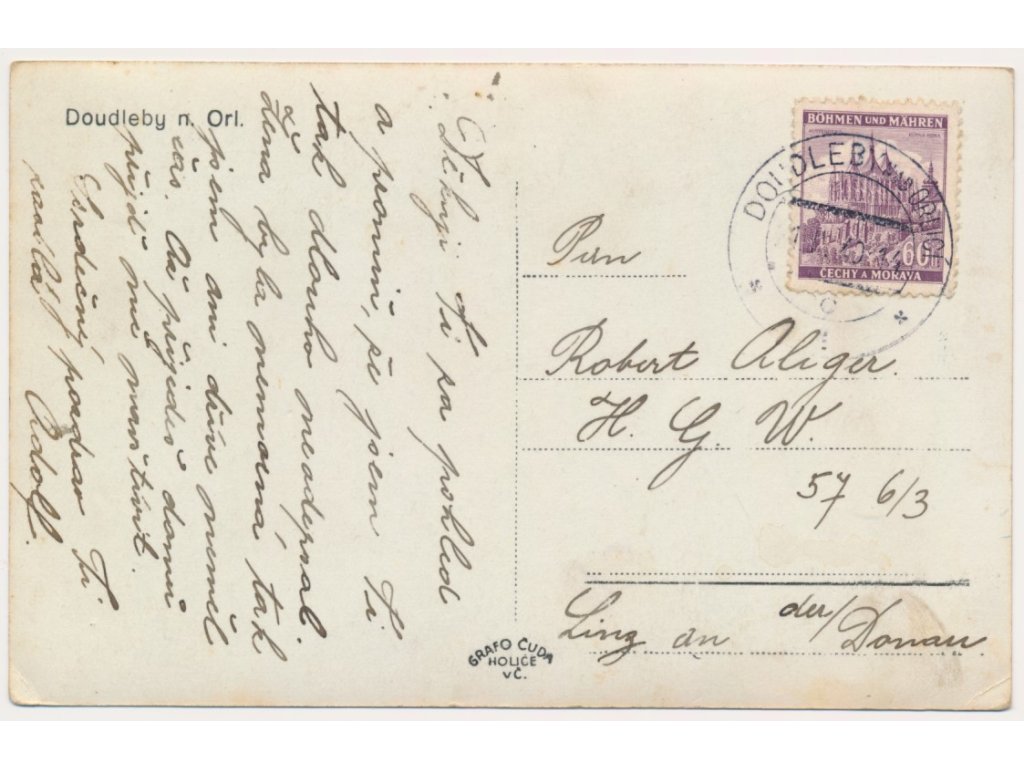 Doudleby n. Orl.
Děkuji Ti za pohled
a promiň, že jsem Ti
tak dlouho neodepsal.
Žena byla nemocná tak
jsem ani dříve neměl
čas. Až přijedeš domů
přijď mne navštívit.
Srdečný pozdrav Ti
zasílá
Adolf.
BÖHMEN UND MÄHREN
60h
ČECHY A MORAVA
DOUDLEBY NAD ORLICÍ
Pan
Robert Aliger
H. G. W.
57 6/3
Linz an der/Donau
GRAFO ČUDA
HOLICE
VČ.